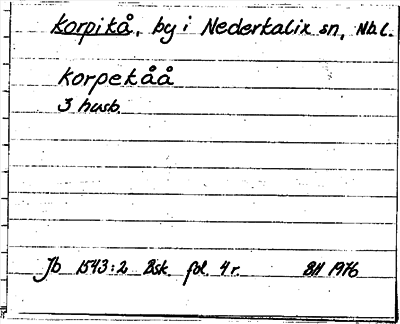 Korpikå, by i Nederkalix sn, Nbl.
Korpekåå
3 husb.
Jb 1543:2 Bsk. fol. 4 r. BH 1976